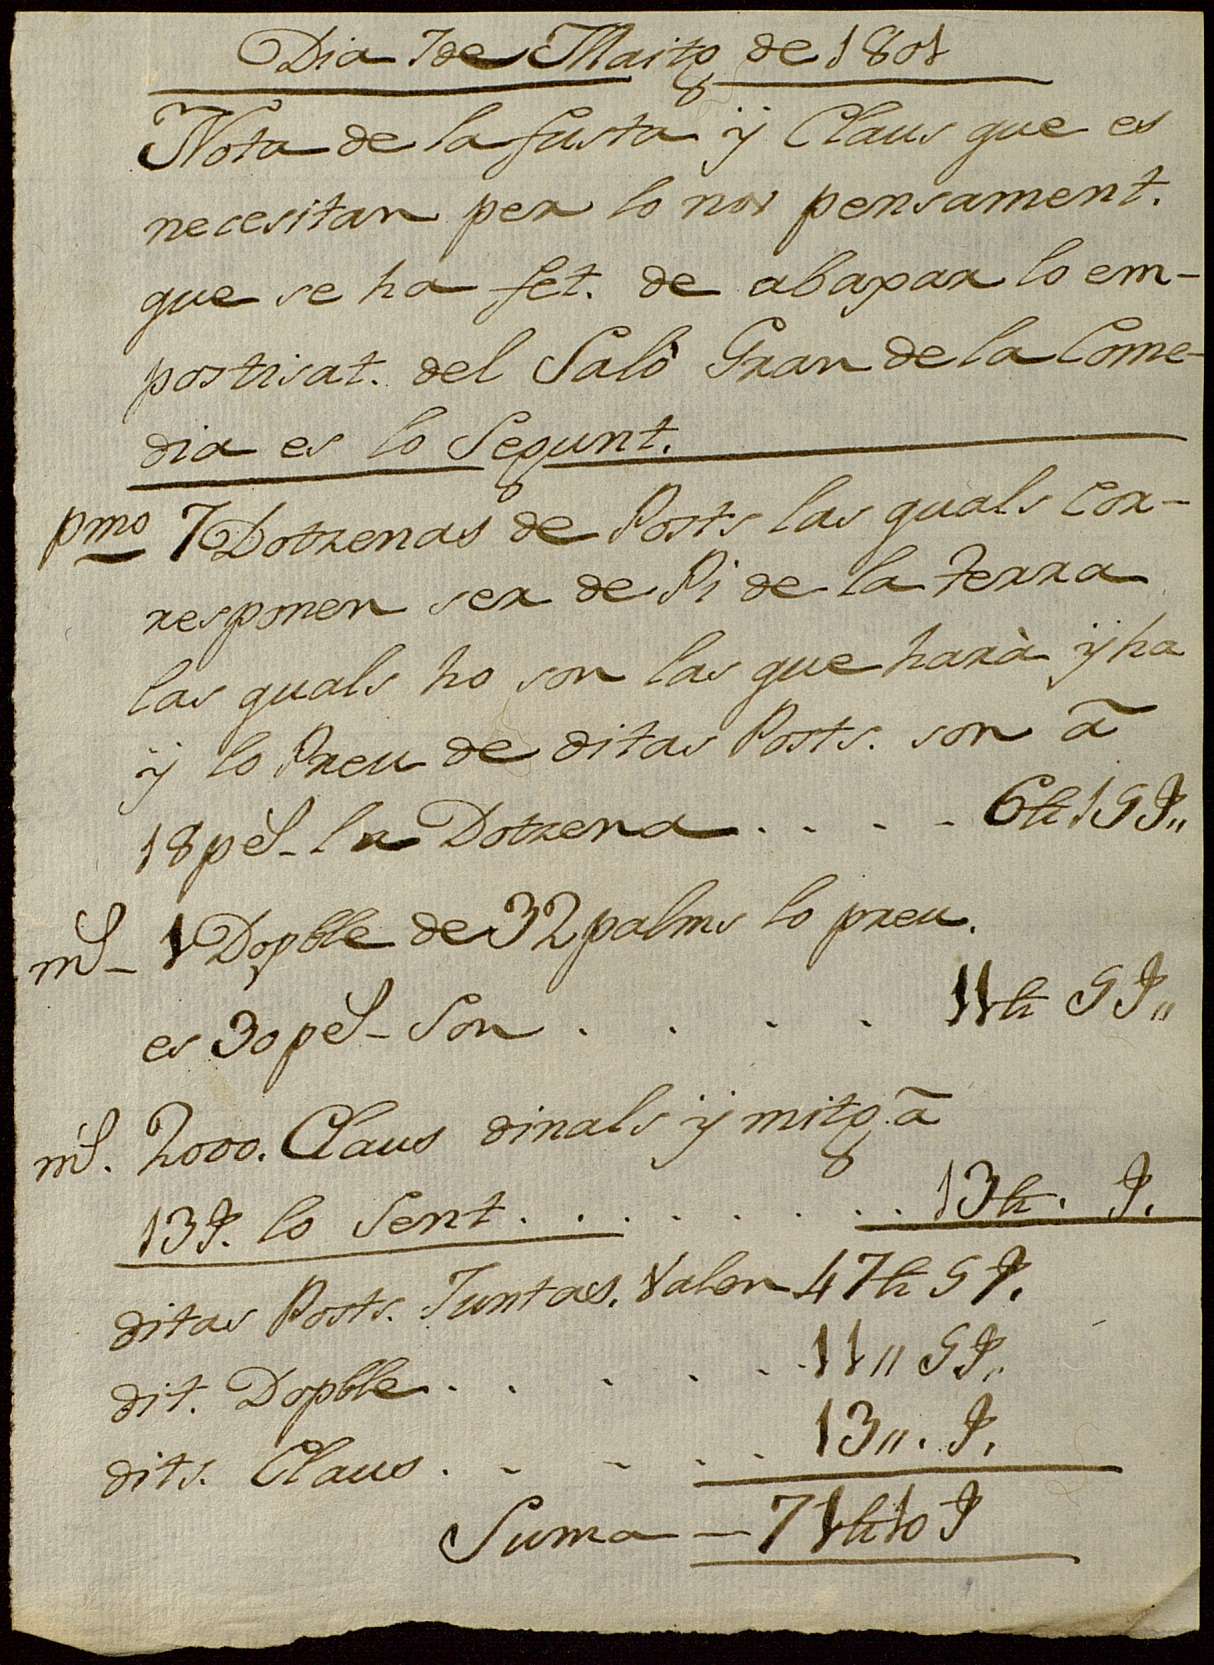 Dia 7 de Maitg de 1801
Nota de la fusta y Claus que es
necesitan per lo nou pensament.
que se ha fet. de abaxar lo em-
postisat. del Salò Gran de la Come-
dia es lo Segunt.
pmo 7 Dotzenas de Posts las quals cor-
responen ser de Pi de la terra
las quals ho son las que harà y ha
y lo Preu de ditas Posts. son ã
18 pēl- la Dotzena . . . . 6 ₶ 15 ₰„
 1 Dopble de 32 palms lo preu.
es 30 pēl- Son . . . . 11 ₶ 5 ₰„
 2000. Claus dinals y mitg. ã
13 ₰. lo Sent . . . . . . . . 13 ₶. ₰.
ditas Posts. Juntas. Valen 47 ₶ 5 ₰.
dit. Dopble . . . . . . 11 „ 5 ₰„
dits. Claus . . . . . 13 „. ₰.
Suma — 71 ₶ 10 ₰